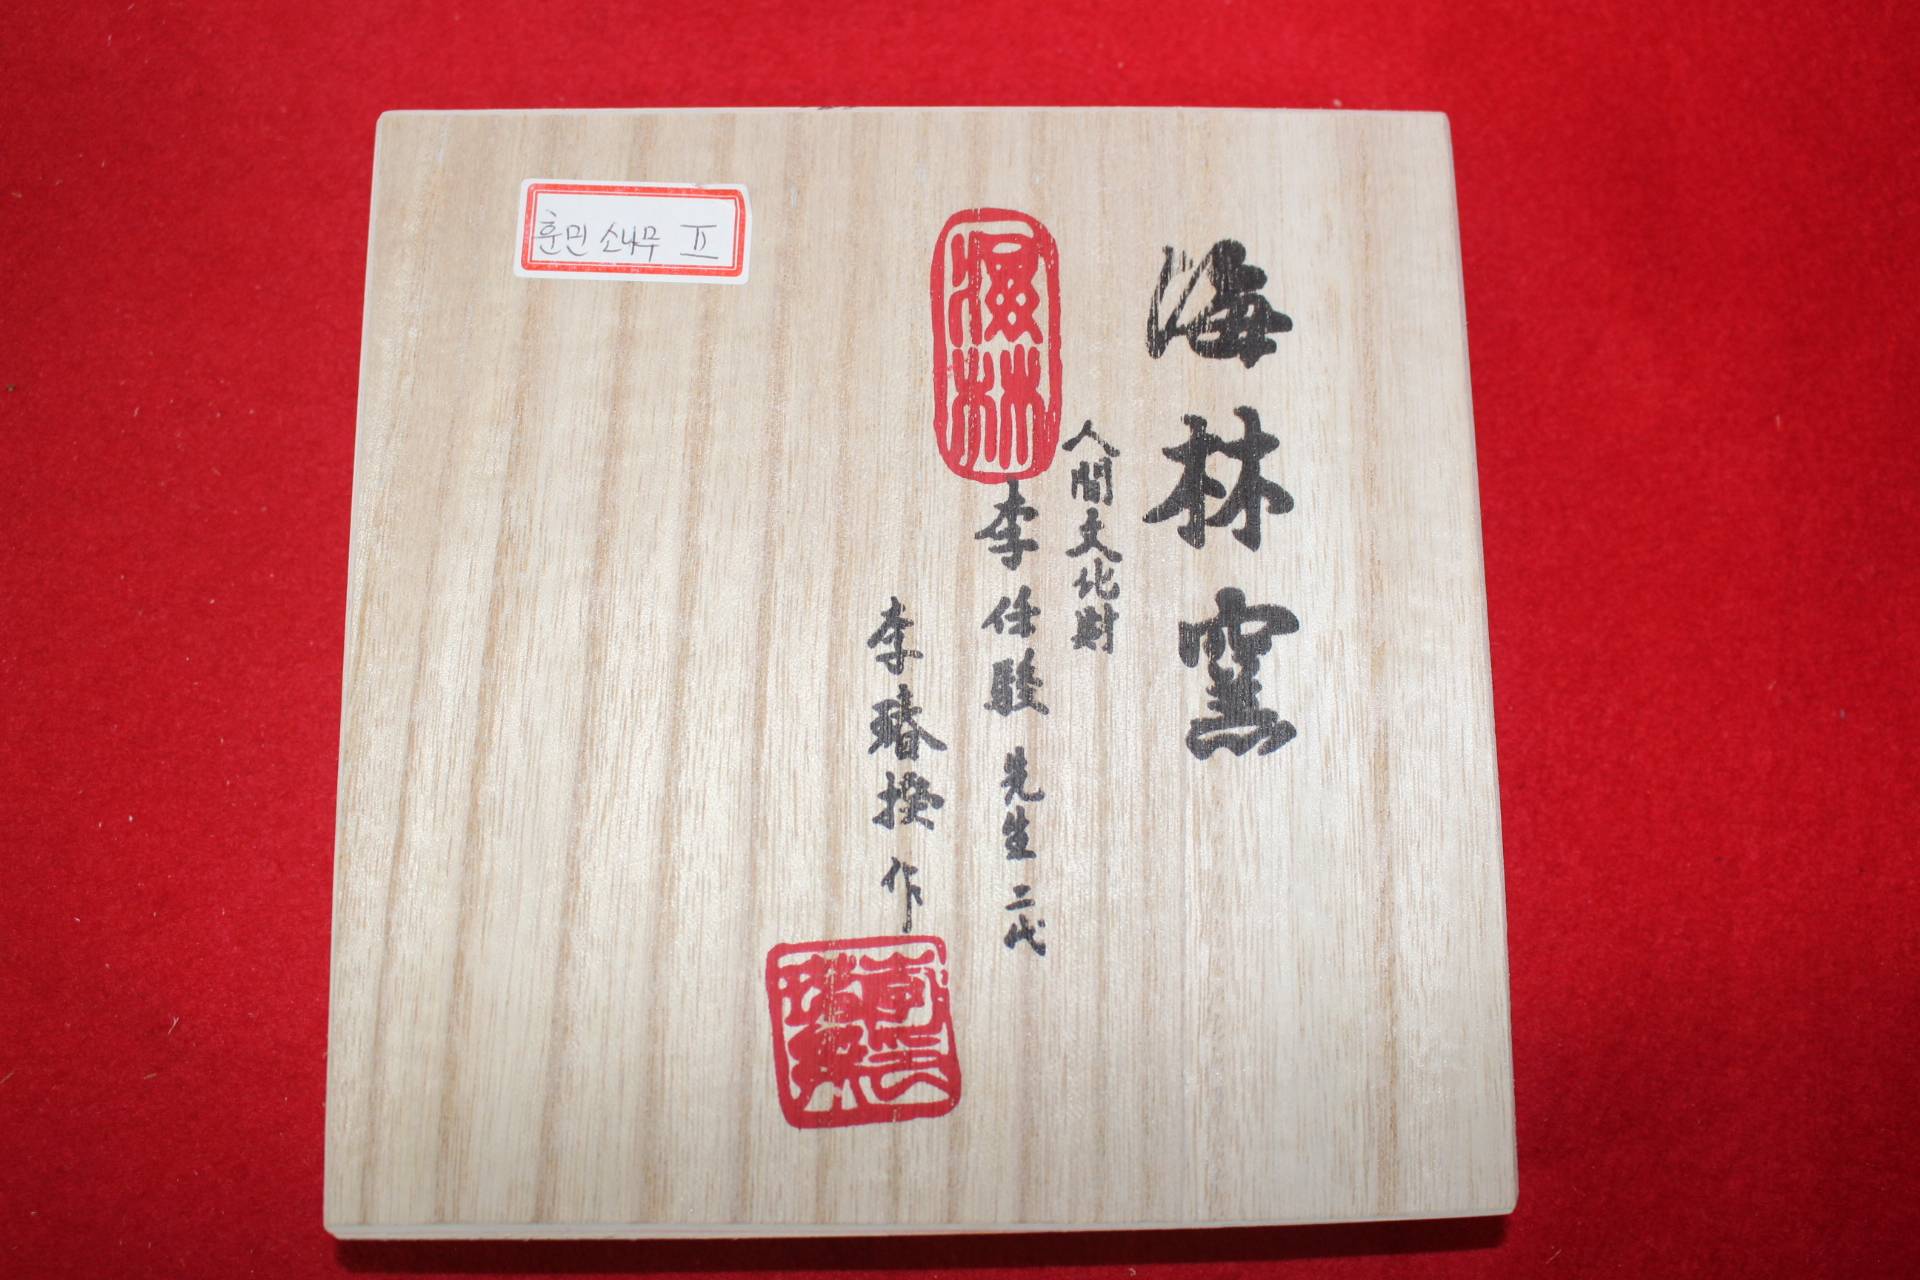 海林窯
人間文化財
海林
李任駿 先生 二代
李瑃揆 作
훈민 소나무 Ⅱ